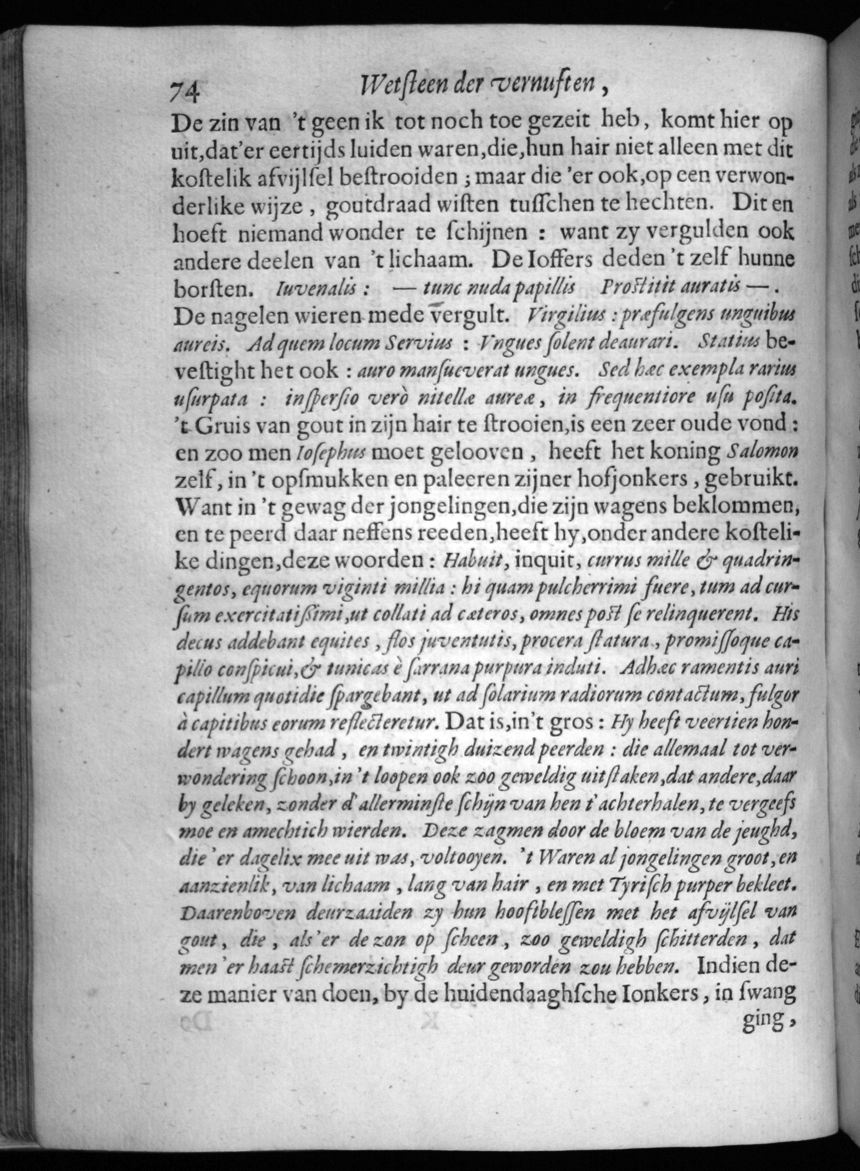 74 Wetſteen der vernuften,
De zin van 't geen ik tot noch toe gezeit heb, komt hier op
uit, dat'er eertijds luiden waren, die, hun hair niet alleen met dit
koſtelik afvijlſel beſtrooiden; maar die 'er ook, op een verwon-
derlike wijze, goutdraad wiſten tuſſchen te hechten. Dit en
hoeft niemand wonder te ſchijnen: want zy vergulden ook
andere deelen van 't lichaam. De Ioffers deden 't zelf hunne
borſten. Iuvenalis: — tunc nuda papillis Proſtitit auratis —.
De nagelen wieren mede vergult. Virgilius: præfulgens unguibus
aureis. Ad quem locum Servius: Vngues ſolent deaurari. Statius be-
veſtight het ook: auro manſueverat ungues. Sed hæc exempla rarius
uſurpata: inſperſio verò nitellæ aureæ, in frequentiore uſu poſita.
't Gruis van gout in zijn hair te ſtrooien, is een zeer oude vond:
en zoo men Ioſephus moet gelooven, heeft het koning Salomon
zelf, in 't opſmukken en paleeren zijner hofjonkers, gebruikt.
Want in 't gewag der jongelingen, die zijn wagens beklommen,
en te peerd daar neffens reeden, heeft hy, onder andere koſteli-
ke dingen, deze woorden: Habuit, inquit, currus mille & quadrin-
gentos, equorum viginti millia: hi quam pulcherrimi fuere, tum ad cur-
ſum exercitatiſſimi, ut collati ad cæteros, omnes poſt ſe relinquerent. His
decus addebant equites, flos juventutis, procera ſtatura, promiſſoque ca-
pillo conſpicui, & tunicas è ſarrana purpura induti. Adhæc ramentis auri
capillum quotidie ſpargebant, ut ad ſolarium radiorum contactum, fulgor
à capitibus eorum reflecteretur. Dat is, in't gros: Hy heeft veertien hon-
dert wagens gehad, en twintigh duizend peerden: die allemaal tot ver-
wondering ſchoon, in 't loopen ook zoo geweldig uitſtaken, dat andere, daar
by geleken, zonder d'allerminſte ſchijn van hen t'achterhalen, te vergeefs
moe en amechtich wierden. Deze zagmen door de bloem van de jeughd,
die 'er dagelix mee uit was, voltooyen. 't Waren al jongelingen groot, en
aanzienlik, van lichaam, lang van hair, en met Tyriſch purper bekleet.
Daarenboven deurzaaiden zy hun hooftbleſſen met het afvijlſel van
gout, die, als 'er de zon op ſcheen, zoo geweldigh ſchitterden, dat
men 'er haaſt ſchemerzichtigh deur geworden zou hebben. Indien de-
ze manier van doen, by de huidendaaghſche Ionkers, in ſwang
ging,